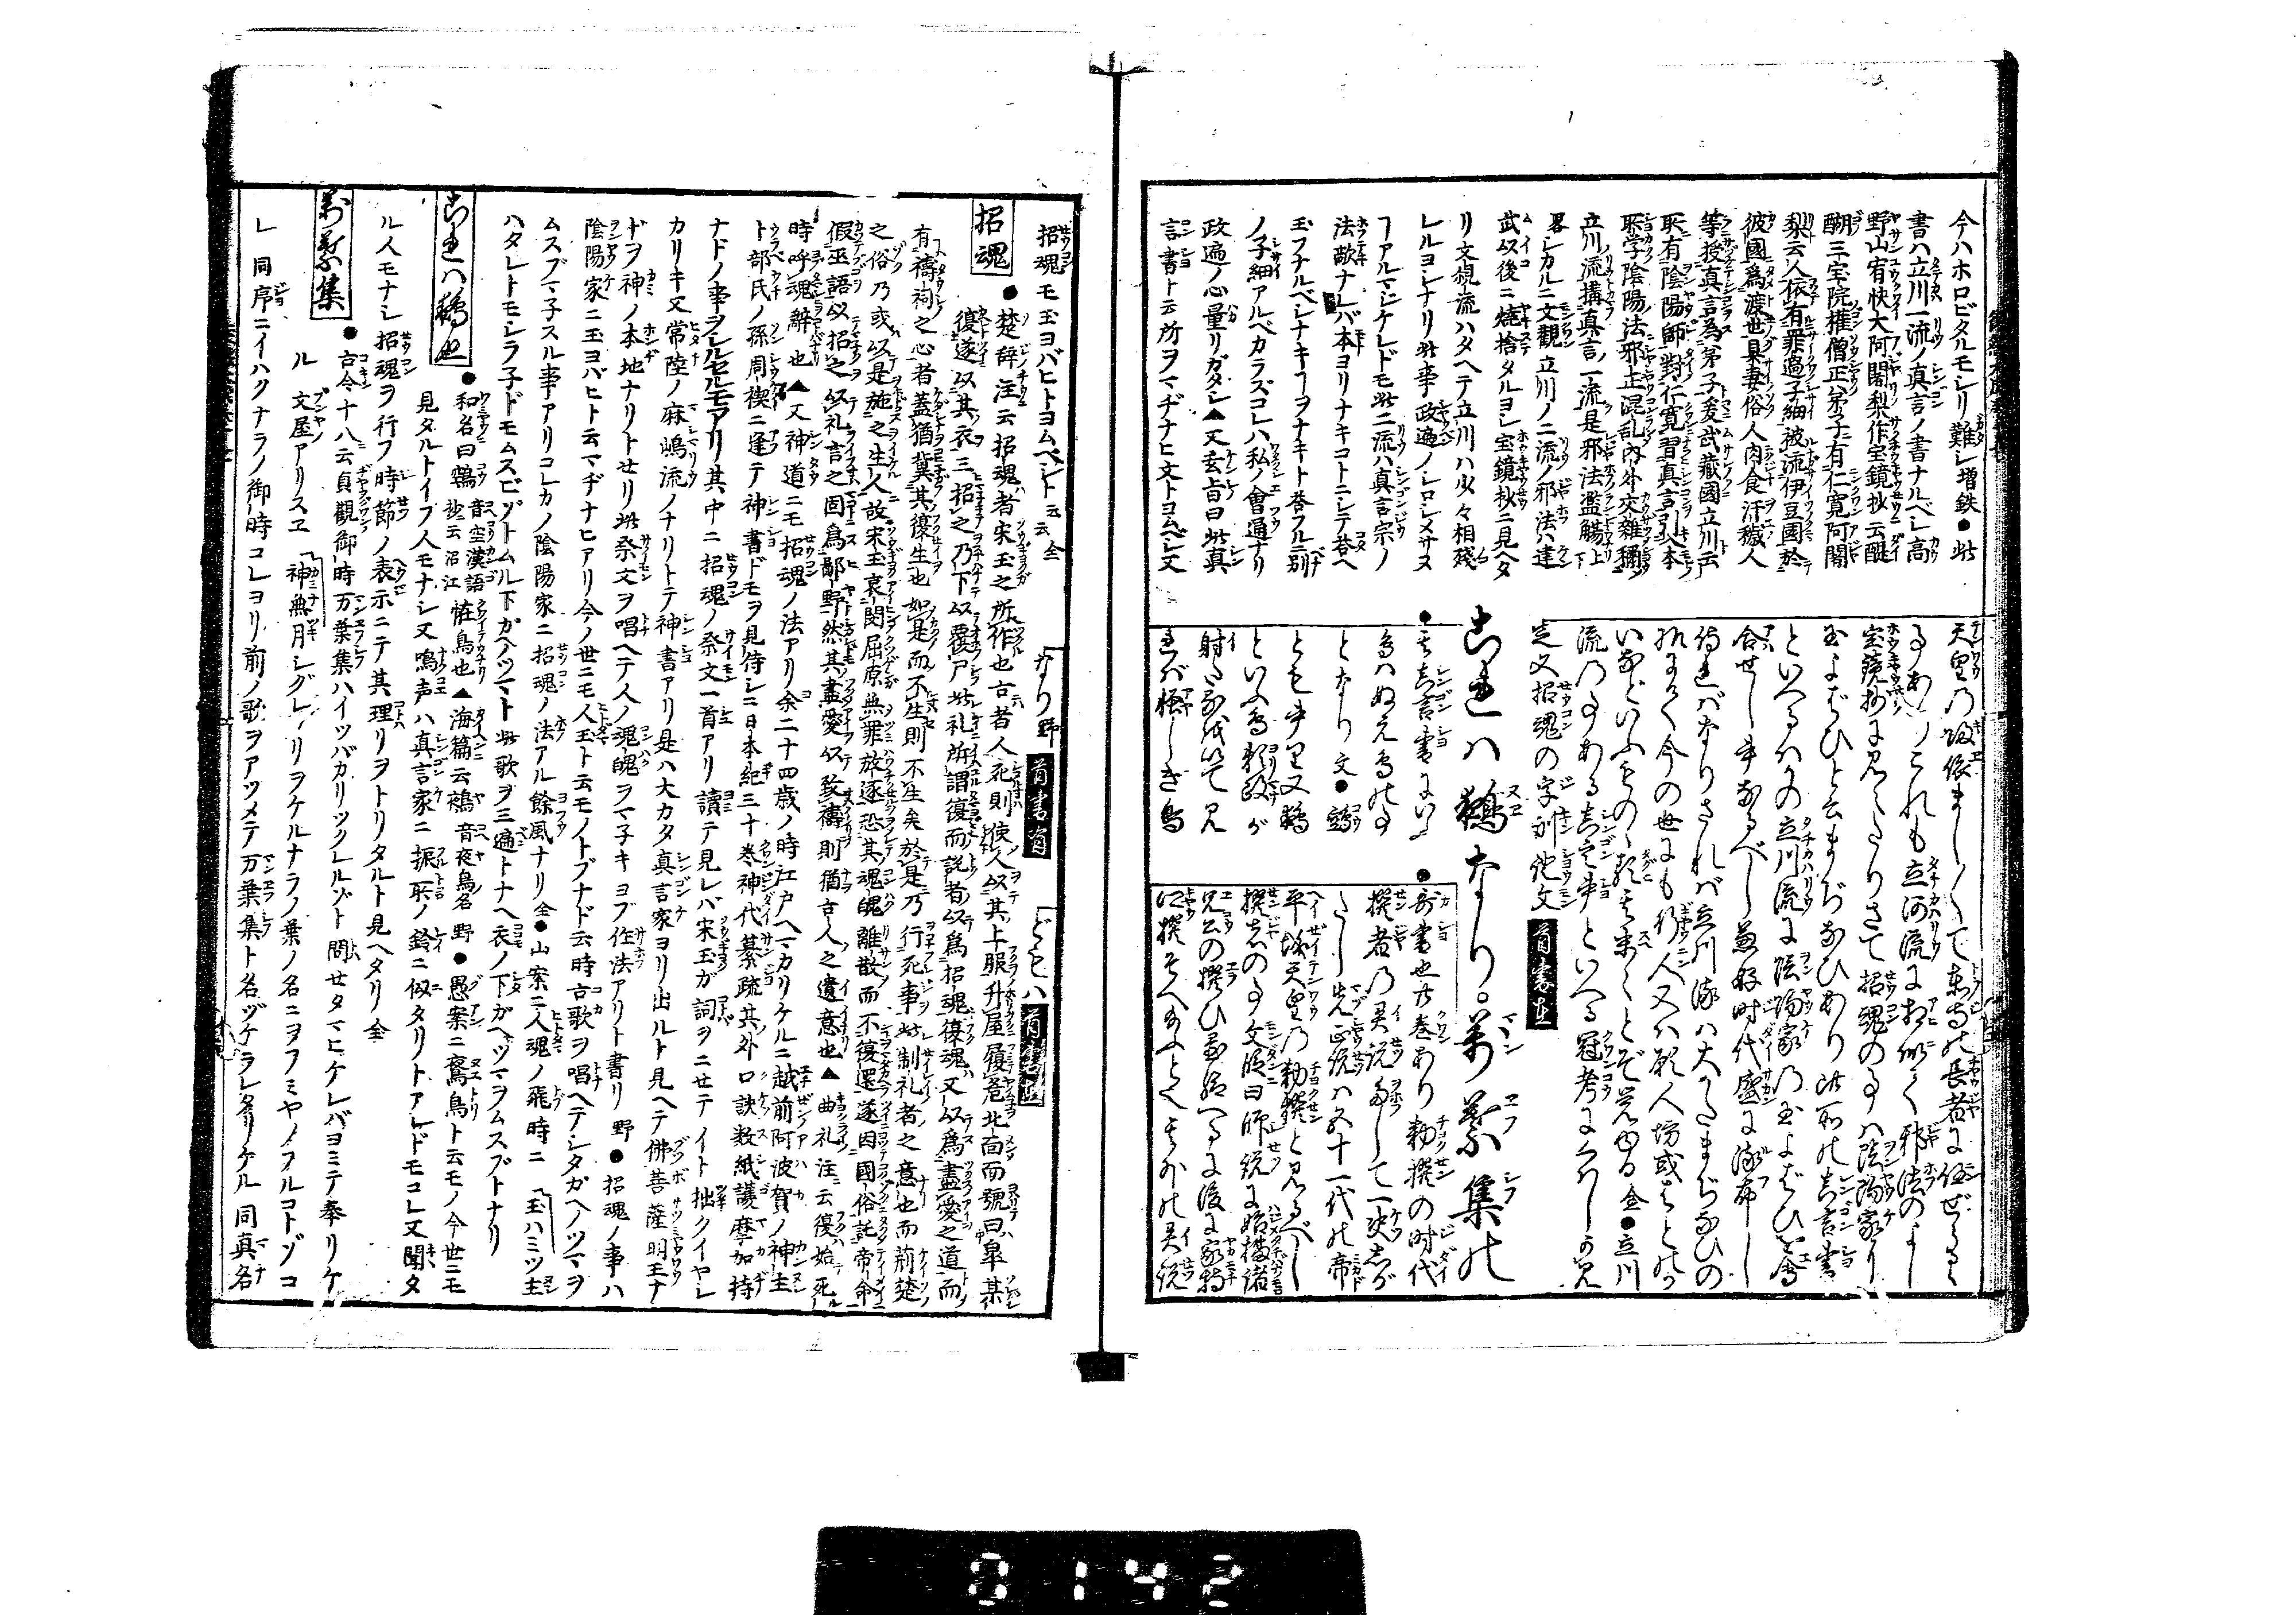 今ハホロビタルモシリ難シ増鉄●此
書ハ立川一流ノ真言ノ書ナルベシ高
野山宥快大阿闍梨作宝鏡抄云醍
醐三宝院権僧正弟子有仁寛阿闍
梨云人依有罪過子細被流伊豆國於
彼國為渡世具妻俗人肉食汗穢人
等授真言為弟子爰武蔵國立川云
所有陰陽師對仁寛習真言引入本
所学陰陽法邪正混乱内外交雜稱
立川流構真言一流是邪法濫觴上下
畧シカルニ文觀立川ノ二流ノ邪法ハ建
武以後ニ燒捨タルヨシ宝鏡抄ニ見ヘタ
リ文観流ハタヘテ立川ハ少々相残
レルヨシナリ此事政遍ノシロシメサヌ
ヿアルマジケレドモ此二流ハ真言宗ノ
法敵ナレバ本ヨリナキコトニシテ答ヘ
玉フナルベシナキヿヲナキト答フルニ別
ノ子細アルベカラズコレハ私ノ會通ナリ
政遍ノ心量リガタシ▲又玄旨曰此真
言書ト云所ヲマヂナヒ文トヨムベシ又
天皇乃帰依ましく〳〵て東寺の長者に任ぜらるゝ
事あり これも立河流に相似て邪法のよし
宝鏡抄に見へたりさて招魂の事ハ陰陽家に
玉よばひと云まぢなひあり此所の真言書
といへるハかの立川流に陰陽家乃玉よばひを會
合せし事なるべし兼好時代盛に流布し
侍ればなりされバ立川流ハ大かたまぢなひの
流乃事ある真言書といへる冠考にくハし可見
是又招魂の字訓他文 首書在
これハ鵺なり。萬葉集の
●真言書にいふ
鳥ハぬえ鳥の事
となり文●鵼
とも書り又鵺
といふ鳥頼政が
射たるを以て見
れば極しき鳥
●哥書也廿巻あり勅撰の時代
撰者乃異説多して一決しが
たし先正統ハ五十一代の帝
平城天皇乃勅撰と見るべし
撰者の事文段曰師説に始橘諸
兄公の撰ひ玉ひ給へるに後に家持
に撰そへ給ふとぞ其外の異説
招魂モ玉ヨバヒトヨムベシト云云全
なり野 首書有
どもハ 首書在
招魂
●楚辞注云招魂者宋玉之所作也古者人死則使人以其上服升屋履危北面而號曰皐某
復遂以其衣三招之乃下以覆尸此礼所謂復而説者以為招魂復魂又以為盡愛之道而
有禱祠之心者蓋猶冀其復生也如是而不生則不生矣於是乃行死事此制礼者之意也而荊楚
之俗乃或以是施之生人故宋玉哀閔屈原無罪放逐恐其魂魄離散而不復還遂因國俗託帝命
假巫語以招之以礼言之固為鄙野然其盡愛以致禱則猶古人之遺意也▲曲礼注云復始死
時呼魂辭也▲又神道ニモ招魂ノ法アリ余二十四歳ノ時江戸ヘマカリケルニ越前阿波賀ノ神主
ト部氏ノ孫周禊ニ逢テ神書ドモヲ見侍シニ日本紀三十巻神代纂疏其外口訣数紙護摩加持
ナドノ事ヲシルセルモアリ其中ニ招魂ノ祭文一首アリ讀テ見レバ宋玉ガ詞ヲニせテイト拙クイヤシ
カリキ又常陸ノ麻嶋流ノナリトテ神書アリ是ハ大カタ真言家ヨリ出ルト見ヘテ佛菩薩明王ナ
ドヲ神ノ本地ナリトせリ此祭文ヲ唱ヘテ人ノ魂魄ヲマ子キヨブ作法アリト書リ 野●招魂ノ事ハ
陰陽家ニ玉ヨバヒト云マヂナヒアリ今ノ世ニモ人玉ト云モノトブナド云時古歌ヲ唱ヘテシタガヘノツマヲ
ムスブマ子スル事アリコレカノ陰陽家ニ招魂ノ法アル餘風ナリ全●山案ニ人魂ノ飛時ニ「玉ハミツ主
ハタレトモシラ子ドモムスビゾトムル下ガヘツマト此歌ヲ三遍トナヘ衣ノ下ガヘヅマヲムスブトナリ
こまハ鵺也
●和名曰鵼音空漢語抄云沼江恠鳥也▲海篇云鵺音夜鳥名 野●愚案ニ鵼鳥ト云モノ今世ニモ
見タルトイフ人モナシ又鳴声ハ真言家ニ振所ノ鈴ニ似タリトアレドモコレ又聞タ
ル人モナシ招魂ヲ行フ時節ノ表示ニテ其理リヲトリタルト見ヘタリ全
萬葉集
●古今十八云貞觀御時万葉集ハイツバカリツクレルゾト問せタマヒケレバヨミテ奉リケ
ル 文屋アリスヱ「神無月シグレフリヲケルナラノ葉ノ名ニヲフミヤノフルコトゾコ
レ 同序ニイハクナラノ御時コレヨリ前ノ歌ヲアツメテ万葉集ト名ヅケラレタリケル同真名
0142